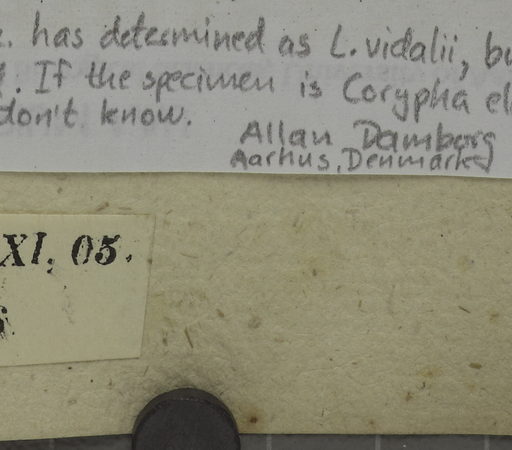 . has determined as L. vidalii, bu
. If the specimen is Corypha el
don't know.
Allan Damborg
Aarhus, Denmark
XI, 05.